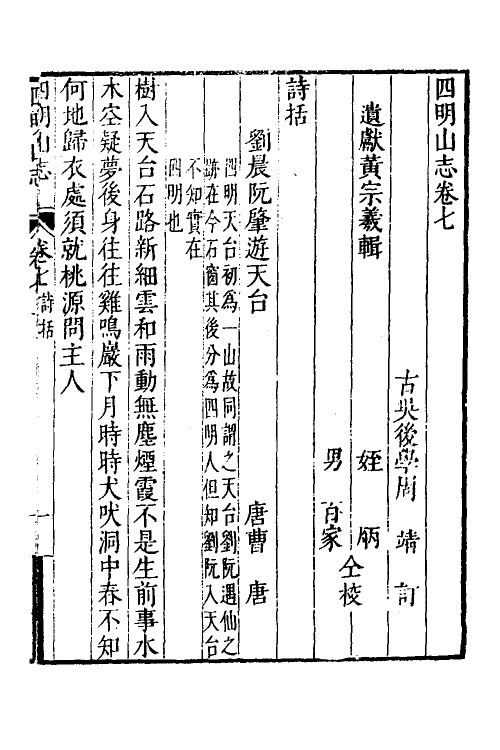 四明山志卷七
古吳後學周　靖　訂
遺獻黃宗羲輯
姪　炳
男　百家
仝校
詩括
劉晨阮肇遊天台　唐曹　唐
四明天台初爲一山故同謂之天台劉阮遇仙之
跡在今石窗其後分爲四明人但知劉阮入天台
不知實在
四明也
樹入天台石路新細雲和雨動無塵煙霞不是生前事水
木空疑夢後身往往雞鳴巖下月時時犬吠洞中春不知
何地歸衣處須就桃源問主人
四明山志　卷七　詩括　一